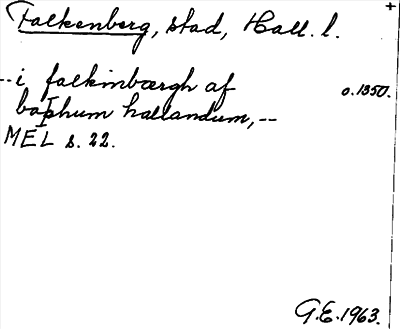 Falkenberg, stad, Hall. l.
--i falkinbærgh af o.1350.
baþhum hallandum,--
MEL s. 22.
G.E. 1963.